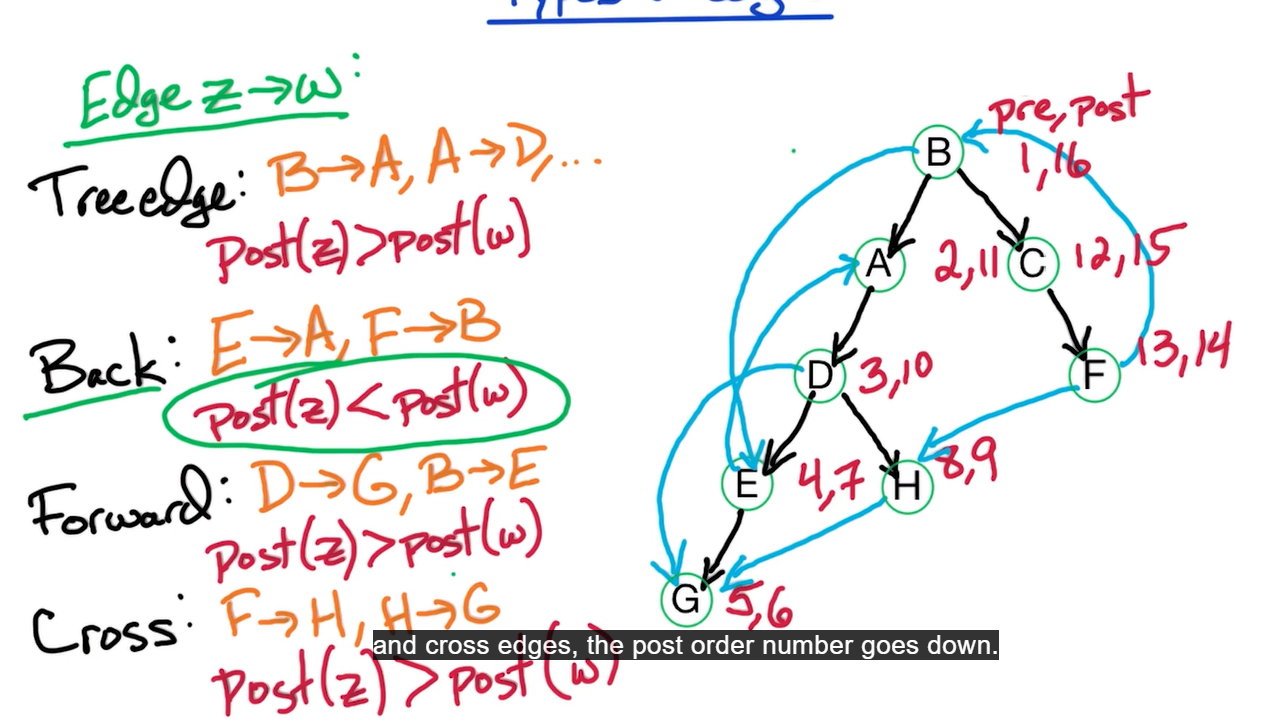 Edge z→w:
Tree edge: B→A, A→D,...
post(z)>post(w)
Back: E→A, F→B
post(z)<post(w)
Forward: D→G, B→E
post(z)>post(w)
Cross: F→H, H→G
post(z)>post(w)
pre, post
B 1,16
A 2,11 C 12,15
D 3,10 F 13,14
E 4,7 H 8,9
G 5,6
and cross edges, the post order number goes down.